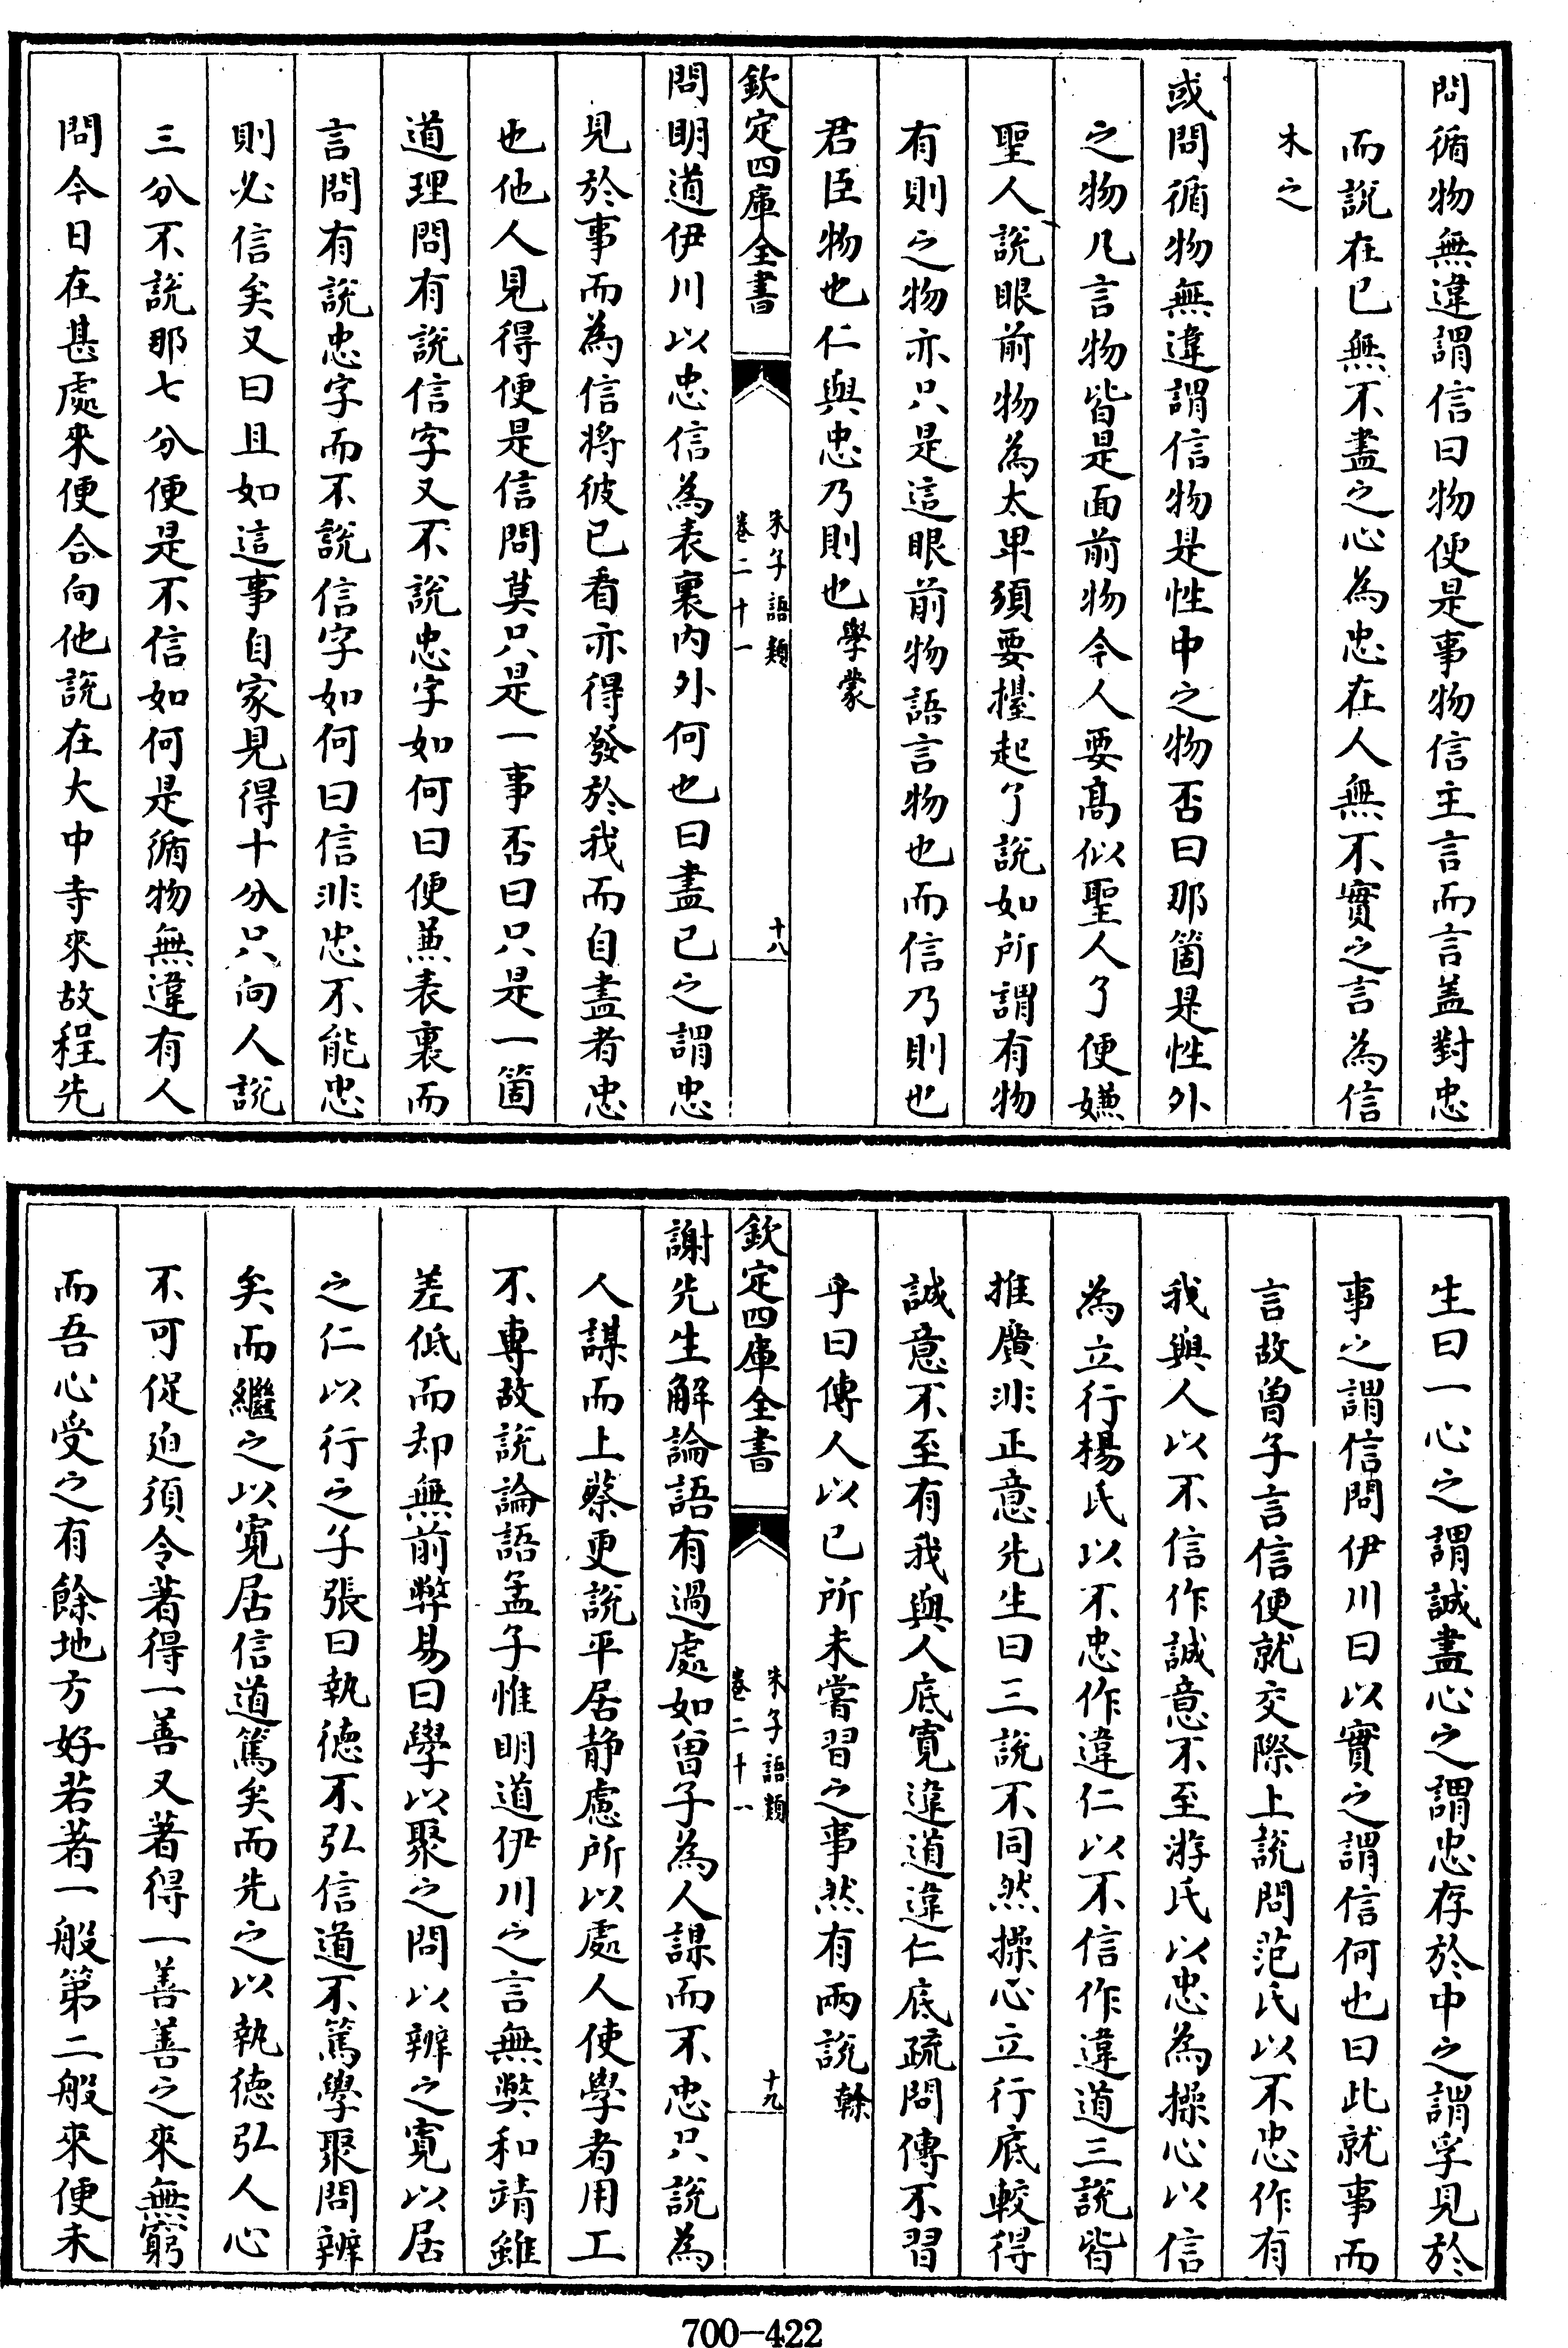 問循物無違謂信曰物便是事物信主言而言盖對忠
而說在己無不盡之心為忠在人無不實之言為信
木之
或問循物無違謂信物是性中之物否曰那箇是性外
之物凡言物皆是面前物今人要髙似聖人了便嫌
聖人說眼前物為太卑須要擡起了說如所謂有物
有則之物亦只是這眼前物語言物也而信乃則也
君臣物也仁與忠乃則也學蒙
欽定四庫全書
朱子語類
卷二十一
十八
問明道伊川以忠信為表裏内外何也曰盡己之謂忠
見於事而為信將彼己看亦得發於我而自盡者忠
也他人見得便是信問莫只是一事否曰只是一箇
道理問有說信字又不說忠字如何曰便兼表裏而
言問有說忠字而不說信字如何曰信非忠不能忠
則必信矣又曰且如這事自家見得十分只向人說
三分不說那七分便是不信如何是循物無違有人
問今日在甚處來便合向他說在大中寺來故程先
生曰一心之謂誠盡心之謂忠存於中之謂孚見於
事之謂信問伊川曰以實之謂信何也曰此就事而
言故曽子言信便就交際上說問范氏以不忠作有
我與人以不信作誠意不至游氏以忠為操心以信
為立行楊氏以不忠作違仁以不信作違道三說皆
推廣非正意先生曰三說不同然操心立行底較得
誠意不至有我與人底寛違道違仁底疏問傳不習
乎曰傳人以己所未嘗習之事然有兩說榦
欽定四庫全書
朱子語類
卷二十一
十九
謝先生解論語有過處如曽子為人謀而不忠只說為
人謀而上蔡更說平居静慮所以處人使學者用工
不專故說論語孟子惟明道伊川之言無弊和靖雖
差低而却無前弊易曰學以聚之問以辨之寛以居
之仁以行之子張曰執徳不弘信道不篤學聚問辨
矣而繼之以寛居信道篤矣而先之以執徳弘人心
不可促迫須令著得一善又著得一善善之來無窮
而吾心受之有餘地方好若著一般第二般來便未
700-422